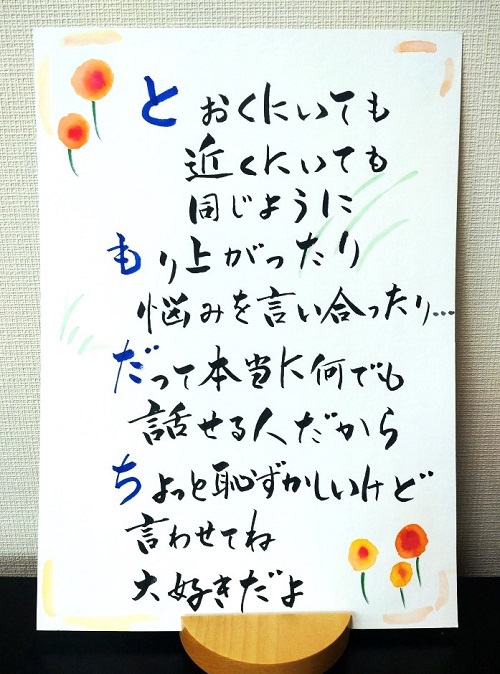 とおくにいても
近くにいても
同じように
もり上がったり
悩みを言い合ったり…
だって本当に何でも
話せる人だから
ちょっと恥ずかしいけど
言わせてね
大好きだよ